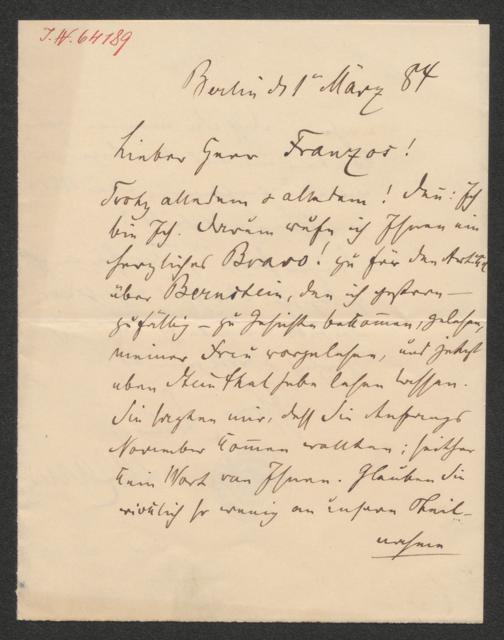 J.N. 64189
Berlin d 1n März 84
Lieber Herr Franzos!
Trotz alledem & alledem! Denn: Ich
bin Ich. Darum rufe ich Ihnen ein
herzliches Bravo! zu für den Artikel
über Bernstein, den ich gestern –
zufällig – zu Gesichte bekommen, gelesen,
meiner Frau vorgelesen, und jetzt
eben habe lesen lassen.
Sie sagten mir, daß Sie Anfangs
November kommen wollten; seither
kein Wort von Ihnen. Glauben Sie
wirklich so wenig an unsere Theil-
nahme